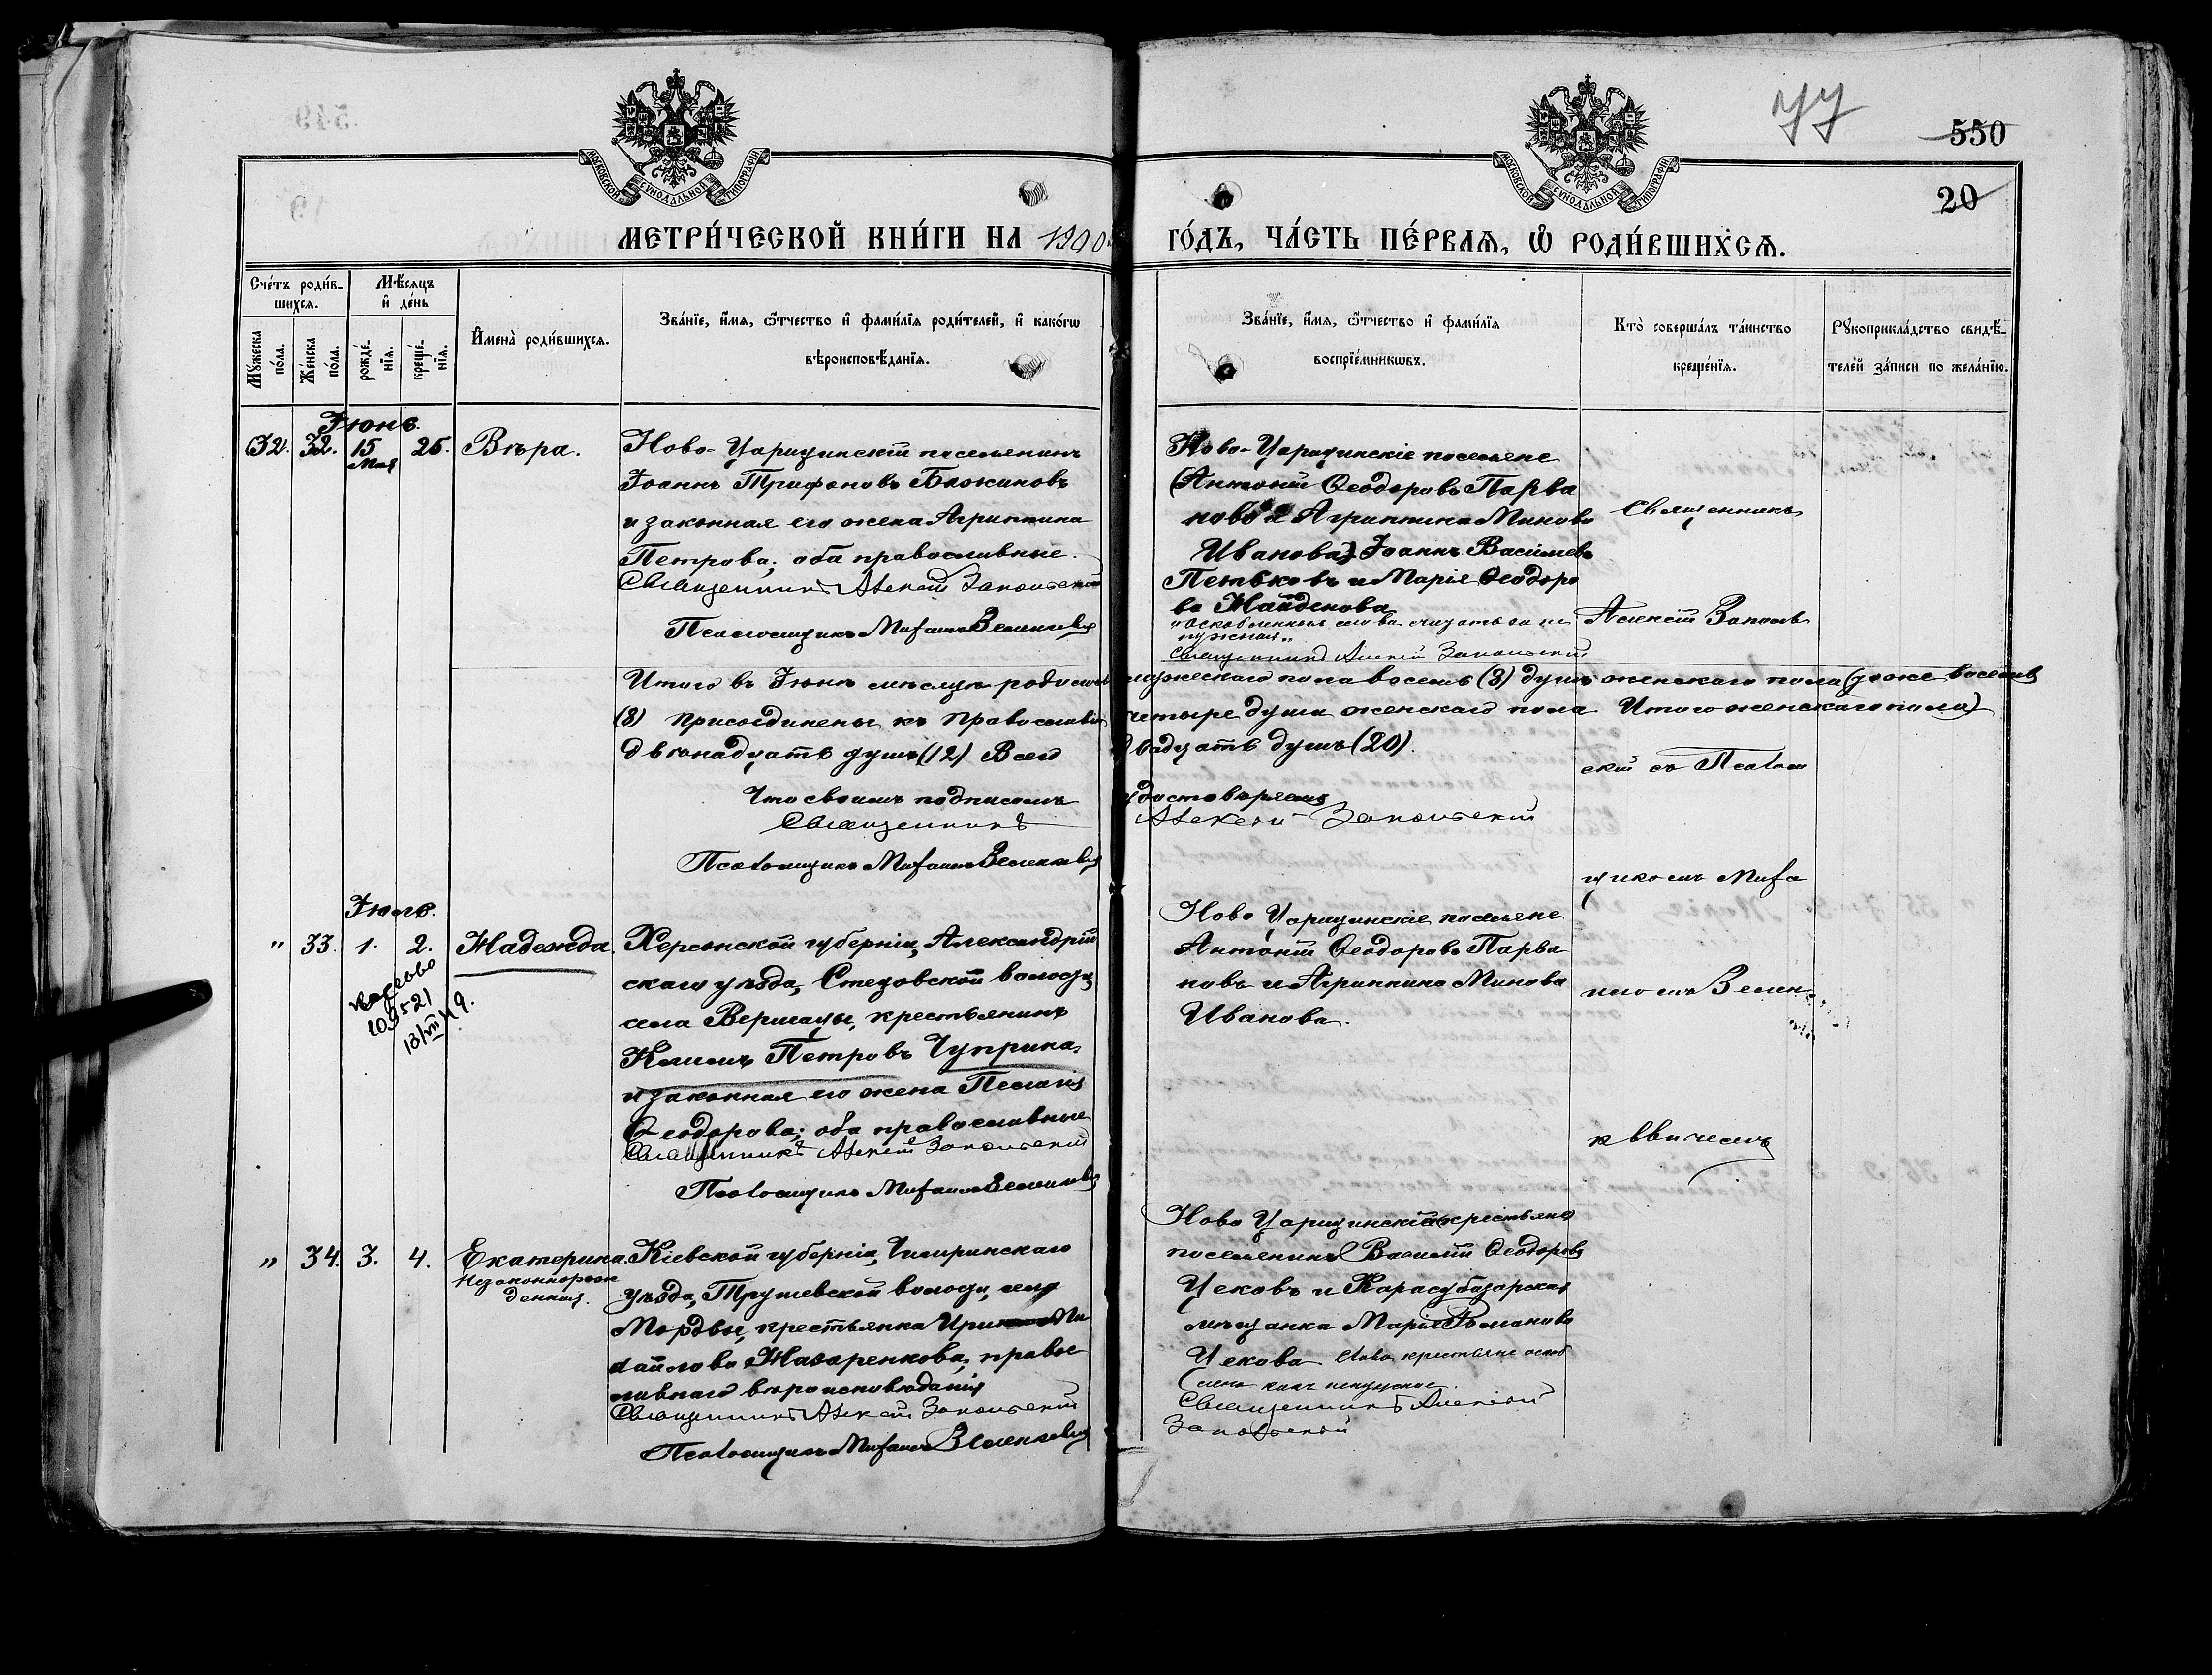 уу
550
20
МОСКОВСКОЙ СУНОДАЛЬНОЙ ТИПОГРАФІИ
МОСКОВСКОЙ СУНОДАЛЬНОЙ ТИПОГРАФІИ
МЕТРИ́ЧЕСКОЙ КНИ́ГИ НА 1900
ГО́ДЪ, ЧА́СТЬ ПЕ́РВАѦ, Ѽ РОДИ́ВШИХСѦ.
Сче́тъ роди́в-
шихсѧ.
Мѣ́сѧцъ
и҆ де́нь
Мꙋжеска по́ла.
Же́нска по́ла.
рожде́-
нїѧ.
креще́-
нїѧ.
И҆мена̀ роди́вшихсѧ.
Зва́нїе, и҆́мѧ, ѻ҆́тчество и҆ фами́лїѧ роди́телей, и҆ како́гѡ
вѣроисповѣ́данїѧ.
Зва́нїе, и҆́мѧ, ѻ҆́тчество и҆ фами́лїѧ
воспрїе́мникѡвъ.
Кто̀ соверша́лъ та́инство
креще́нїѧ.
Рꙋкоприкла́дство свидѣ́-
телей за́писи по жела́нїю.
Іюнь.
32. 32. 15 25. Вѣра.
Мая
Ново-Царицинскій поселянинъ
Іоаннъ Трифоновъ Бложиновъ
и законная его жена Агриппина
Петрова; оба православные.
Священникъ Алексій Запольскій
Псаломщикъ Михаилъ Зеленкевич
Ново-Царицинскіе поселяне
(Антоній Ѳеодоровъ Парва
новъ и Агриппина Минова
Иванова). Іоаннъ Васильевъ
Петьковъ и Марія Ѳеодоро
ва Найденова
"Оскобленныя слова считать за не
нужныя"
Священникъ Алексій Запольскій
Священникъ
Алексій Заполь
скій съ Псалом
щикомъ Миха
иломъ Зелен
кевичемъ
Итого въ Іюнѣ мѣсяцѣ родилось мужескаго пола восемь (8) душъ женскаго пола (тоже восемь
(8) присоединены къ православію четыре души женскаго пола. Итого женскаго пола)
двѣнадцать душъ (12) Всего двадцать душъ (20).
Что своимъ подписомъ удостовѣряемъ
Священникъ Алексій Запольскій
Псаломщикъ Михаилъ Зеленкевич
Іюль.
" 33. 1. 2. Надежда.
10521
13/VII 19.
Херсонской губерніи, Александрій
скаго уѣзда, Стецовской волости,
села Вершацы, крестьянинъ
Климъ Петровъ Чуприна
и законная его жена Пелагія
Ѳеодорова; оба православные
Священникъ Алексій Запольскій
Псаломщикъ Михаилъ Зеленкевич
Ново Царицинскіе поселяне
Антоній Ѳеодоровъ Парва
новъ и Агриппина Минова
Иванова.
" 34. 3. 4. Екатерина.
Незаконнорож
денная.
Кіевской губерніи, Чигиринскаго
уѣзда, Трушевской волости, села
Мордвы, крестьянка Ирина Ми
хайлова Назаренкова, правос
лавнаго вѣроисповѣданія
Священникъ Алексій Запольскій
Псаломщикъ Михаилъ Зеленкевич
Ново Царицинскій (крестьяне
поселянинъ) Василій Ѳеодоровъ
Цековъ и Карасубазарская
мѣщанка Марія Романова
Цекова Слово крестьяне оскоб
лено какъ ненужное.
Священникъ Алексій
Запольскій